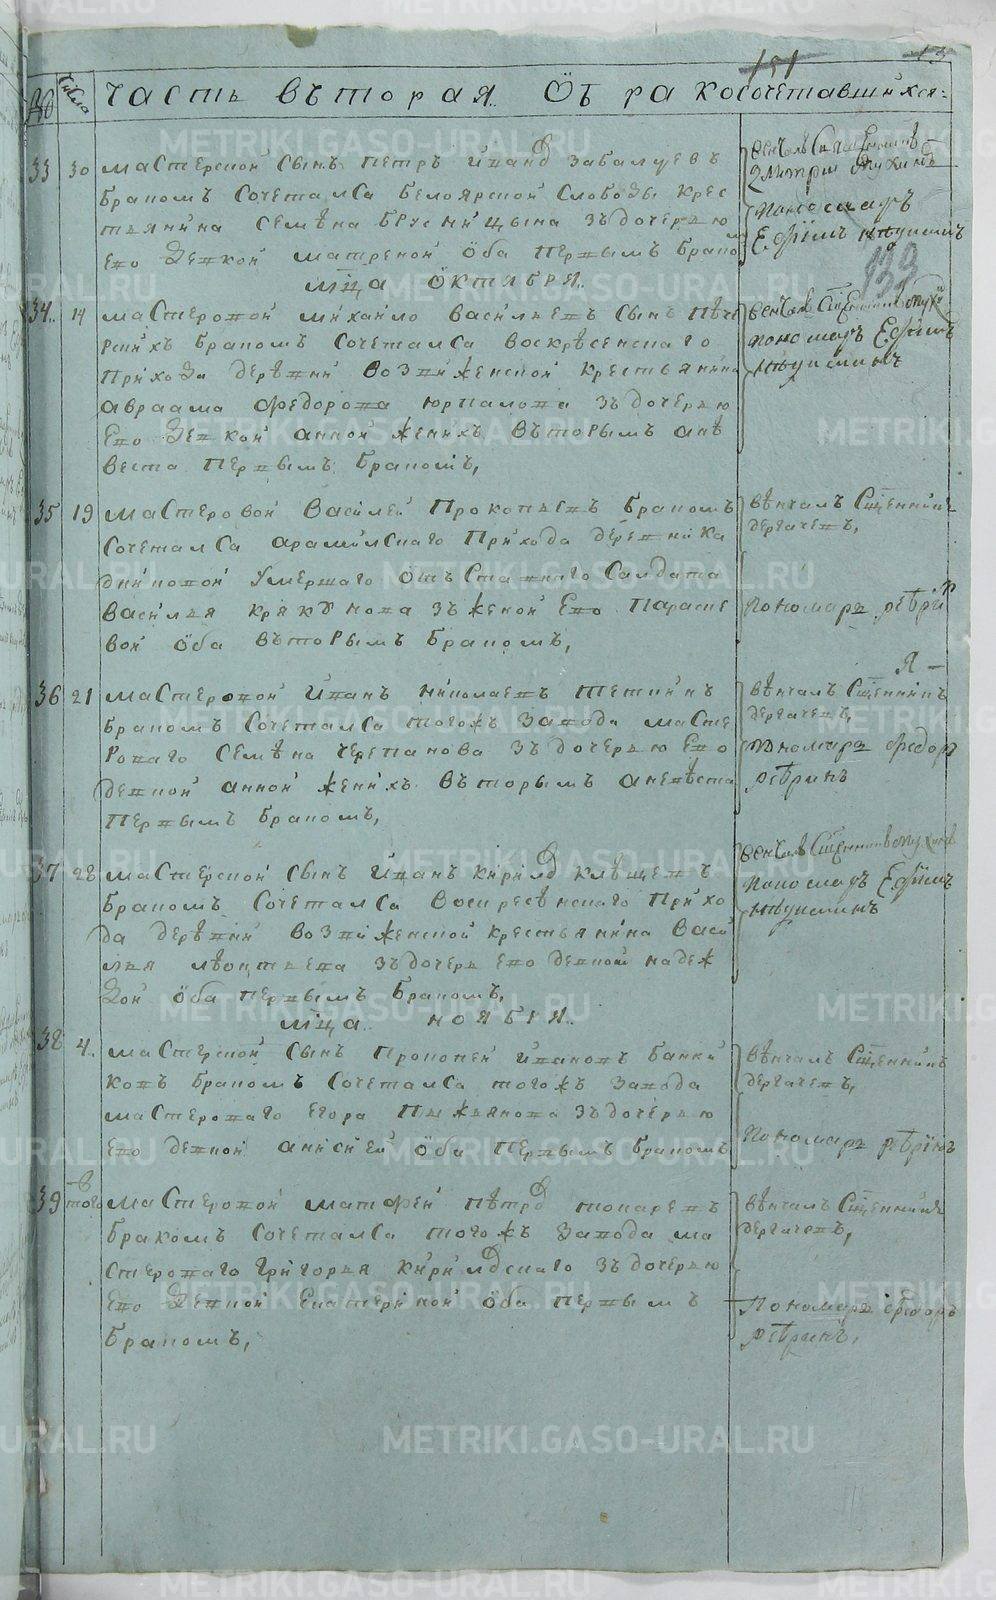 151
13
№ Число Часть вторая О бракосочетавшихся:
33 30 мастерской сынъ Петръ Иванов Забалуевъ
бракомъ сочетался Белоярской слободы крес
тьянина Семена Брусницына здочерью
ево девкой Матреной оба первымъ бракомъ
венчалъ Священникъ
Димитрий Мухинъ
пономарь
Ефимъ
139
мца октября
34 14 мастеровой Михайло Васильевъ сынъ
бракомъ сочетался Воскресенскаго
прихода деревни Воздвиженской крестьянина
Авраама Федорова Юрпалова здочерью
ево девкой Анной женихъ вторымъ а не
веста первымъ бракомъ,
венчалъ Священникъ Мухинъ
пономарь Ефимъ
35 19 мастеровой Василей Прокопьевъ бракомъ
сочетался Арамилскаго прихода деревни Ка
дниковой умершаго отъставнаго салдата
Василья Крякунова зженой ево Параске
вой оба вторымъ бракомъ,
венчалъ Священникъ
Дергачевъ,
пономарь Ребринъ
36 21 мастеровой Иванъ Николаевъ Тетинъ
бракомъ сочетался тогожъ завода масте
роваго Семена Черепанова здочерью ево
девкой Анной женихъ вторымъ аневеста
первымъ бракомъ,
венчалъ Священникъ
Дергачевъ,
пономарь Федоръ
Ребринъ
37 28 мастерской сынъ Иванъ Кирилов Клещевъ
бракомъ сочетался Воскресенскаго прихо
да деревни Воздвиженской крестьянина Васи
лья Леонтьева здочерь ево девкой Надеж
дой оба первымъ бракомъ,
венчалъ Священникъ Мухинъ
пономарь Ефимъ
мца ноября
38 4 мастерской сынъ Прокопей Ивановъ Банни
ковъ бракомъ сочетался тогожъ завода
мастероваго Егора Пьянкова здочерью
ево девкой Анисией оба первымъ бракомъ
венчалъ Священникъ
Дергачевъ,
пономарь Ребринъ
39 в того мастеровой Матфей Петров Токаревъ
бракомъ сочетался тогожъ завода ма
стероваго Григорья Кириловскаго здочерью
ево девкой Екатериной оба первымъ
бракомъ,
венчалъ Священникъ
Дергачевъ,
Пономарь Федоръ
Ребринъ,
METRIKI.GASO-URAL.RU